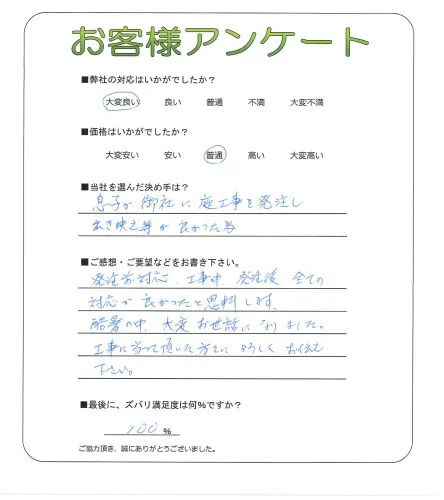 お客様アンケート
■弊社の対応はいかがでしたか？
大変良い 良い 普通 不満 大変不満
■価格はいかがでしたか？
大変安い 安い 普通 高い 大変高い
■当社を選んだ決め手は？
息子が御社に庭工事を発注し
出き映え等が良かった為
■ご感想・ご要望などをお書き下さい。
発注前対応、工事中、発注後全ての
対応が良かったと思料します。
酷暑の中、大変お世話になりました。
工事に当って頂いた方々によろしくお伝え
下さい。
■最後に、ズバリ満足度は何%ですか？
100 %
ご協力頂き、誠にありがとうございました。